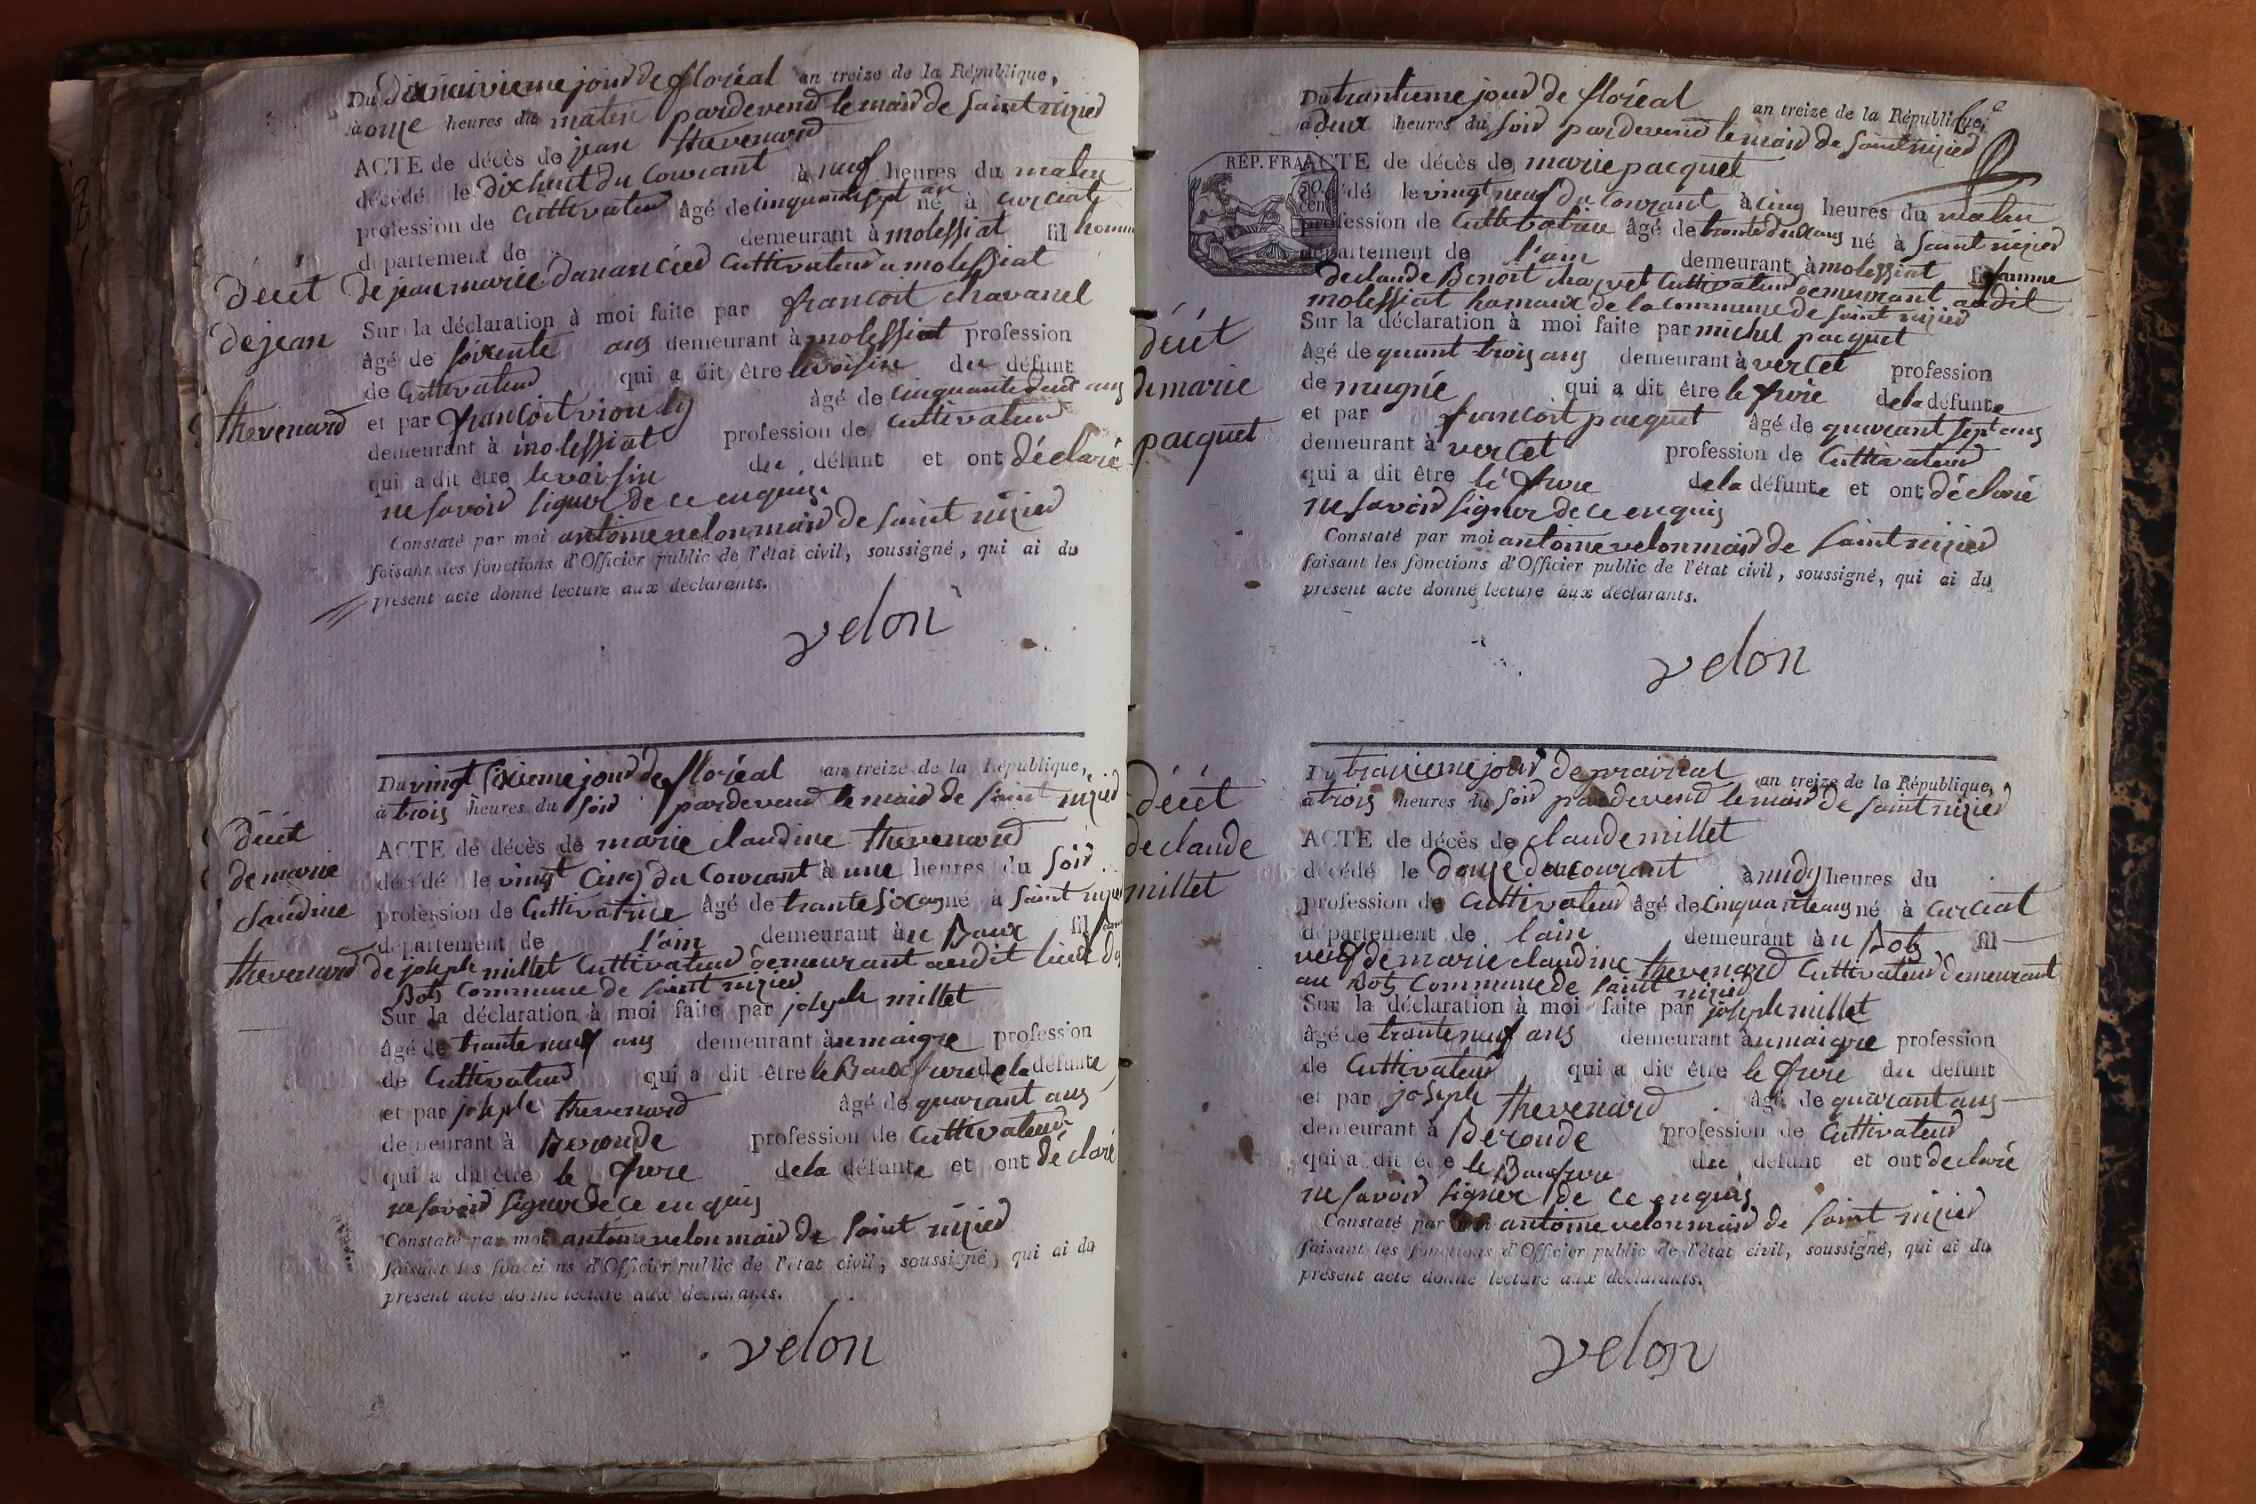 Du dixneuvieme jour de floréal an treize de la République,
à onze heures du matin pardevend le maire de saint nizier
ACTE de décès de jean thevenard
décédé le dix huit du courant à neuf heures du matin
profession de cultivateur âgé de cinquante sept an né à curciat
département de demeurant à molessiat fil homme
de jean marie danancier cultivateur a molessiat
Sur la déclaration à moi faite par francoit chavanel
âgé de soixente ans demeurant à molessiat profession
de cultivateur qui a dit être le voisin du défunt
et par francoit viouly âgé de cinquante deux ans
demeurant à molessiat profession de cultivateur
qui a dit être le voisin du défunt et ont déclaré
ne savoir signer de ce enquis
Constaté par moi antoine velon maire de saint nizier
faisant les fonctions d'Officier public de l'état civil, soussigné, qui ai du
présent acte donné lecture aux déclarants.
velon
décét
de jean
thevenard
Du vingt sixieme jour de floréal an treize de la République,
à trois heures du soir pardevend le maire de saint nizier
ACTE de décès de marie claudine thevenard
décédé le vingt cinq du courant à une heures du soir
profession de cultivatrice âgé de trante six ans né à saint nizier
département de l'ain demeurant à u Baux fil
de joseph millet cultivateur demeurant audit lieu du
Bots commune de saint nizier
Sur la déclaration à moi faite par joseph millet
âgé de trante neuf ans demeurant à umaigre profession
de cultivateur qui a dit être le Beaufrere de la défunte
et par joseph thevenard âgé de quarant ans
demeurant à Beronde profession de cultivateur
qui a dit être le frere de la défunte et ont déclaré
ne savoir signer de ce enquis
Constaté par moi antoine velon maire de saint nizier
faisant les fonctions d'Officier public de l'état civil, soussigné, qui ai du
présent acte donné lecture aux déclarants.
velon
décét
de marie
claudine
thevenard
Du trantieme jour de floréal an treize de la République
à deux heures du soir pardevend le maire de saint nizier
RÉP. FRA
ACTE de décès de marie pacquet
décédé le vingt neuf du courant à cinq heures du matin
profession de cultivatrice âgé de trante deux ans né à saint nizier
département de l'ain demeurant à molessiat fil famme
de claude Benoit charvet cultivateur demeurant audit
molessiat hamaux de la commune de saint nizier
Sur la déclaration à moi faite par michel pacquet
âgé de quarant trois ans demeurant à vercet profession
de mugnie qui a dit être le frere de la défunte
et par francoit pacquet âgé de quarant sept ans
demeurant à vercet profession de cultivateur
qui a dit être le frere de la défunte et ont déclaré
ne savoir signer de ce enquis
Constaté par moi antoine velon maire de saint nizier
faisant les fonctions d'Officier public de l'état civil, soussigné, qui ai du
présent acte donné lecture aux déclarants.
velon
décét
de marie
pacquet
Du traizieme jour de prairial an treize de la République,
à trois heures du soir pardevend le maire de saint nizier
ACTE de décès de claude millet
décédé le douze du courant à midy heures du
profession de cultivateur âgé de cinquante ans né à curciat
département de l'ain demeurant à u Bots fil
veuf de marie claudine thevenard cultivateur demeurant
au Bots commune de saint nizier
Sur la déclaration à moi faite par joseph millet
âgé de trante neuf ans demeurant à umaigre profession
de cultivateur qui a dit être le frere du défunt
et par joseph thevenard âgé de quarant ans
demeurant à Beronde profession de cultivateur
qui a dit être le Beaufrere du défunt et ont déclaré
ne savoir signer de ce enquis
Constaté par moi antoine velon maire de saint nizier
faisant les fonctions d'Officier public de l'état civil, soussigné, qui ai du
présent acte donné lecture aux déclarants.
velon
décét
de claude
millet